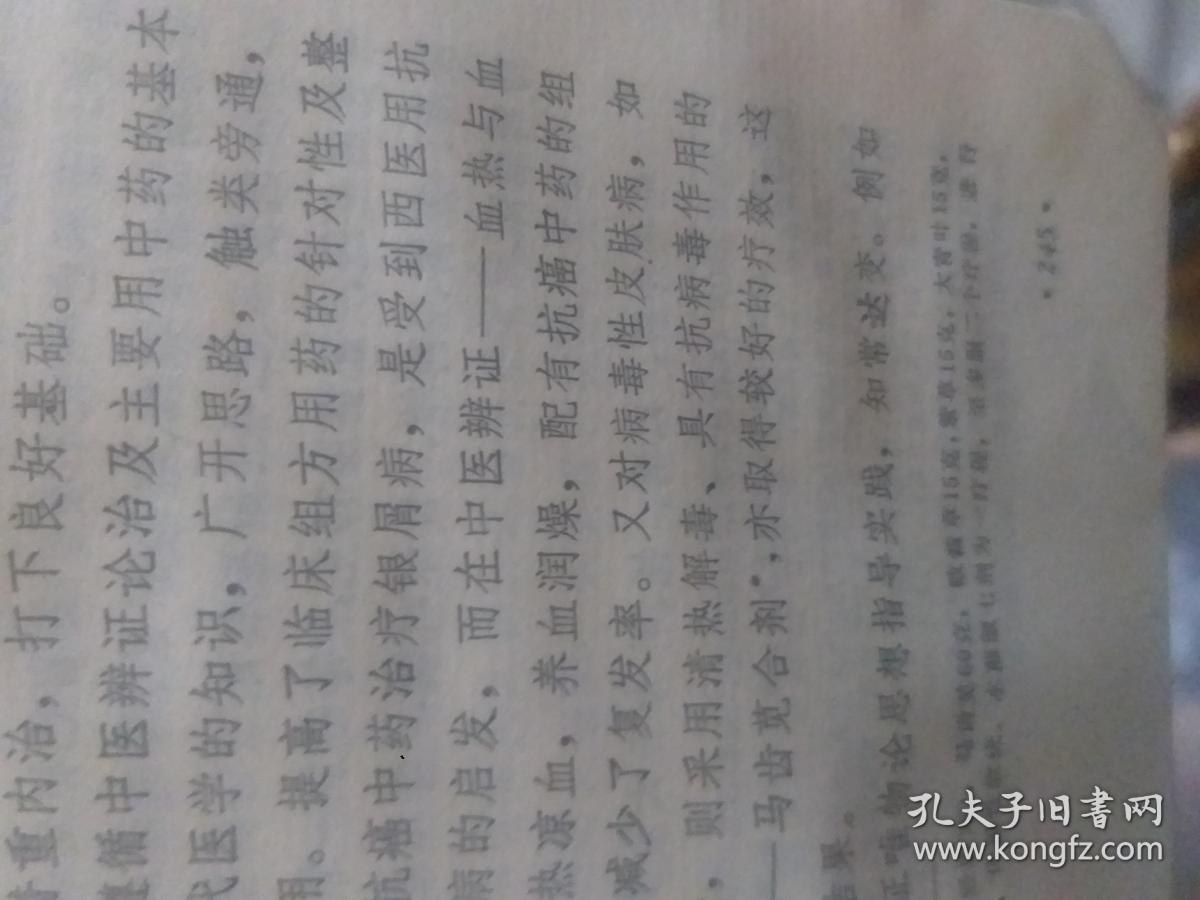 重内治，打下良好基础。
遵循中医辨证论治及主要用中药的基本
代医学的知识，广开思路，触类旁通，
用。提高了临床组方用药的针对性及整
抗癌中药治疗银屑病，是受到西医用抗
病的启发，而在中医辨证——血热与血
热凉血，养血润燥，配有抗癌中药的组
减少了复发率。又对病毒性皮肤病，如
，则采用清热解毒、具有抗病毒作用的
——马齿苋合剂*，亦取得较好的疗效，这
结果。
证唯物论思想指导实践，知常达变。例如
马齿苋60克，败酱草15克，紫草15克，大青叶15克，
水 服七剂为一疗程，
·245·
孔夫子旧书网
www.kongfz.com